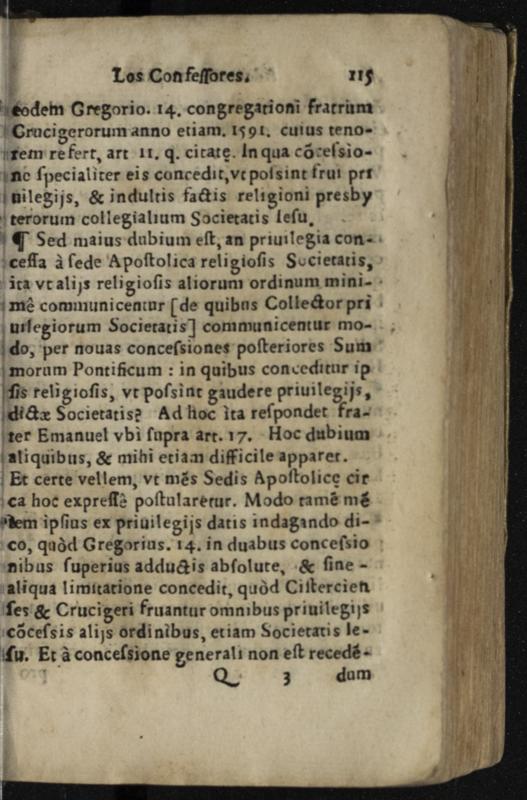 Los Confessores. 115
eodem Gregorio. 14. congregationi fratrum
Crucigerorum anno etiam. 1591. cuius teno-
rem refert, art 11. q. citatę. In qua cõcessio-
ne specialiter eis concedit, vt possint frui pri
uilegijs, & indultis factis religioni presby
terorum collegialium Societatis Iesu.
¶ Sed maius dubium est, an priuilegia con-
cessa à sede Apostolica religiosis Societatis,
ita vt alijs religiosis aliorum ordinum mini-
mê communicentur [de quibus Collector pri
uilegiorum Societatis] communicentur mo-
do, per nouas concessiones posteriores Sum
morum Pontificum : in quibus conceditur ip
sis religiosis, vt possint gaudere priuilegijs,
dictæ Societatis? Ad hoc ita respondet fra-
ter Emanuel vbi supra art. 17. Hoc dubium
aliquibus, & mihi etiam difficile apparet.
Et certe vellem, vt mẽs Sedis Apostolicę cir
ca hoc expressê postularetur. Modo tamẽ mẽ
tem ipsius ex priuilegijs datis indagando di-
co, quòd Gregorius. 14. in duabus concessio
nibus superius adductis absolute, & sine -
aliqua limitatione concedit, quòd Cistercien
ses & Crucigeri fruantur omnibus priuilegijs
cõcessis alijs ordinibus, etiam Societatis Ie-
su. Et à concessione generali non est recedẽ-
Q 3 dum